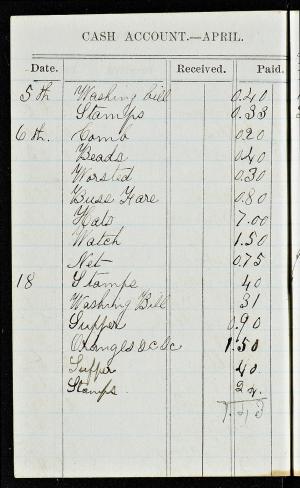 CASH ACCOUNT.—APRIL.
Date. Received. Paid.
5th Washing bill 0.40
Stamps 0.33
6th. Comb 020
Beads 040
Worsted 0.30
Buss Fare 0.80
Hats 7.00
Watch 1.50
Net 075
18 Stamps 40
Washing Bill 31
Supper 0.90
Oranges &c &c 1.50
Supper 40
Stamps 24.